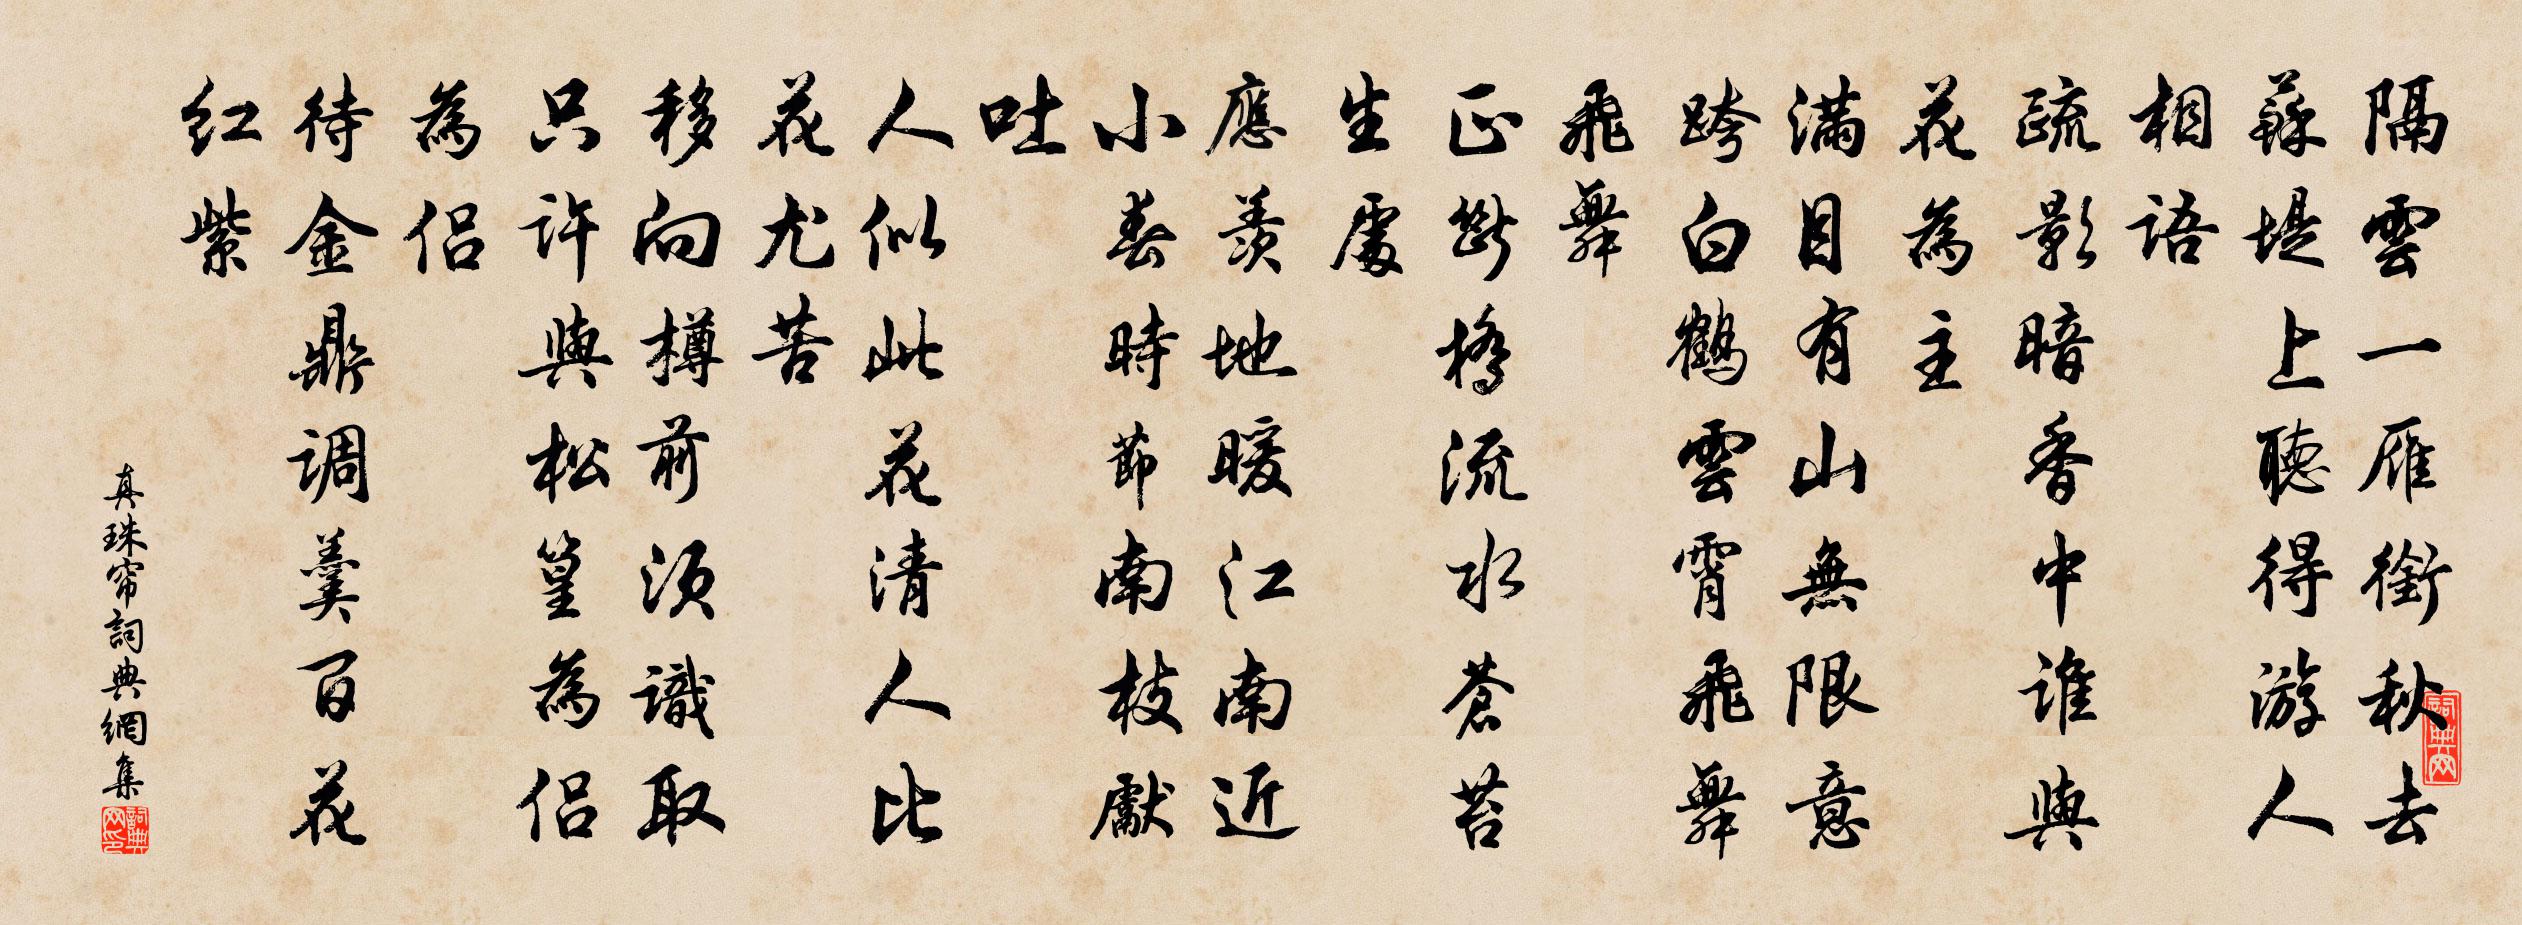 隔雲一雁銜秋去
蘇堤上聽得游人
相語
疏影暗香中誰與
花為主
滿目有山無限意
跨白鶴雲霄飛舞
飛舞
正斷橋流水蒼苔
生處
應羨地暖江南近
小春時節南枝獻
吐
人似此花清人比
花尤苦
移向樽前須識取
只許與松篁為侶
為侶
待金鼎调羹百花
红紫
真珠帘詞典網集
詞典网
詞典网印